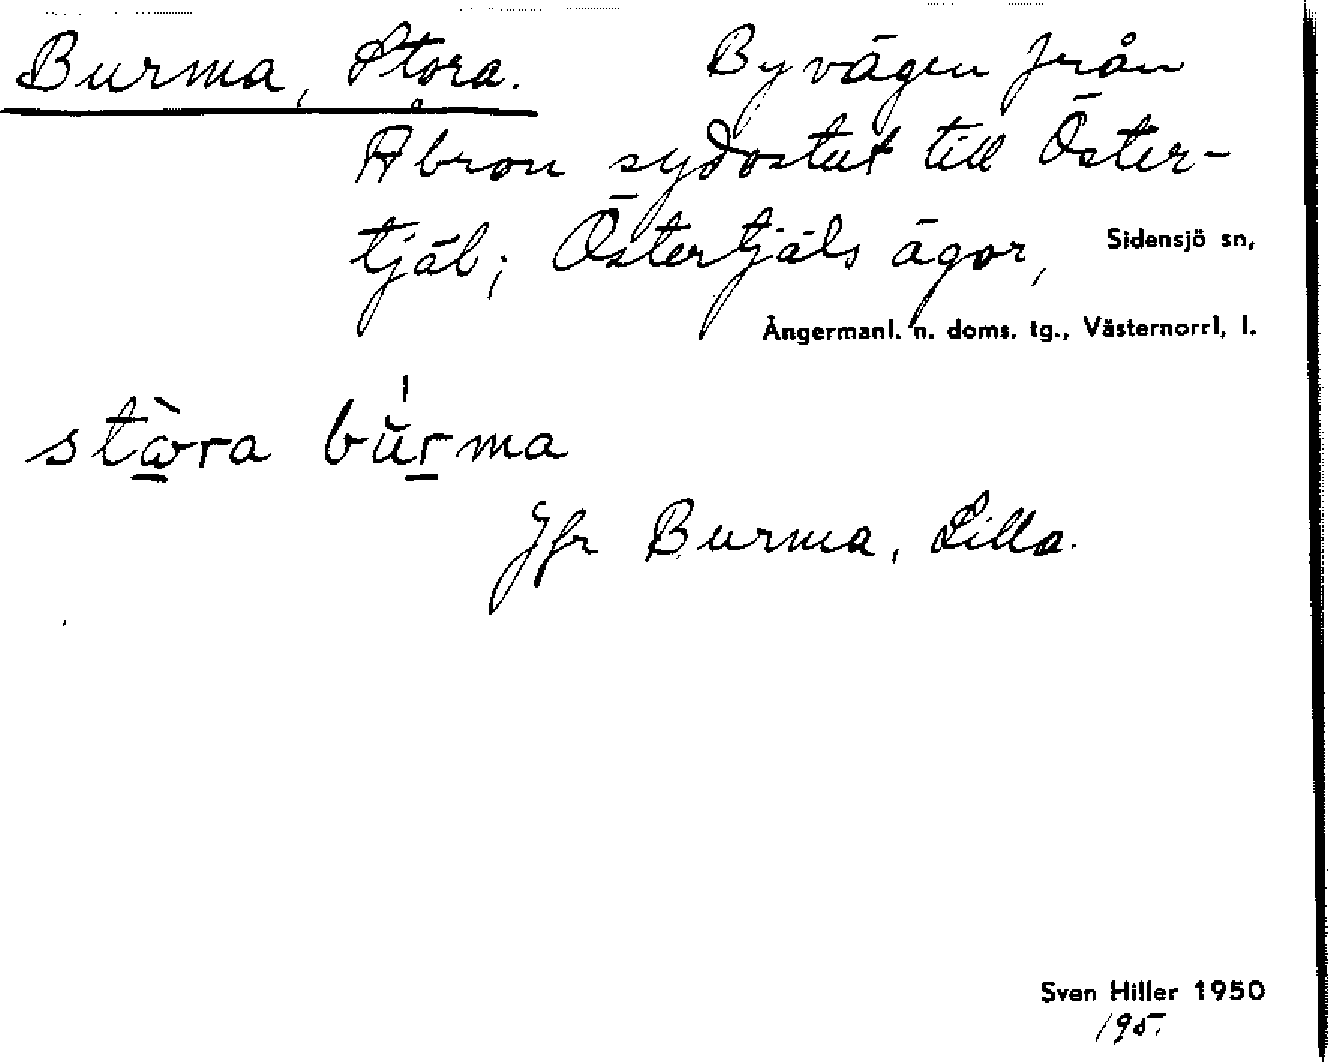 Burma, Stora. Byvägen från
Åbron sydostut till Öster-
tjäl; Östertjäls ägor, Sidensjö sn,
Ångermanl. n. doms. tg., Västernorrl. l.
stɷ̀ra bŭ́rma
Jfr Burma, Lilla.
Sven Hiller 1950
195.